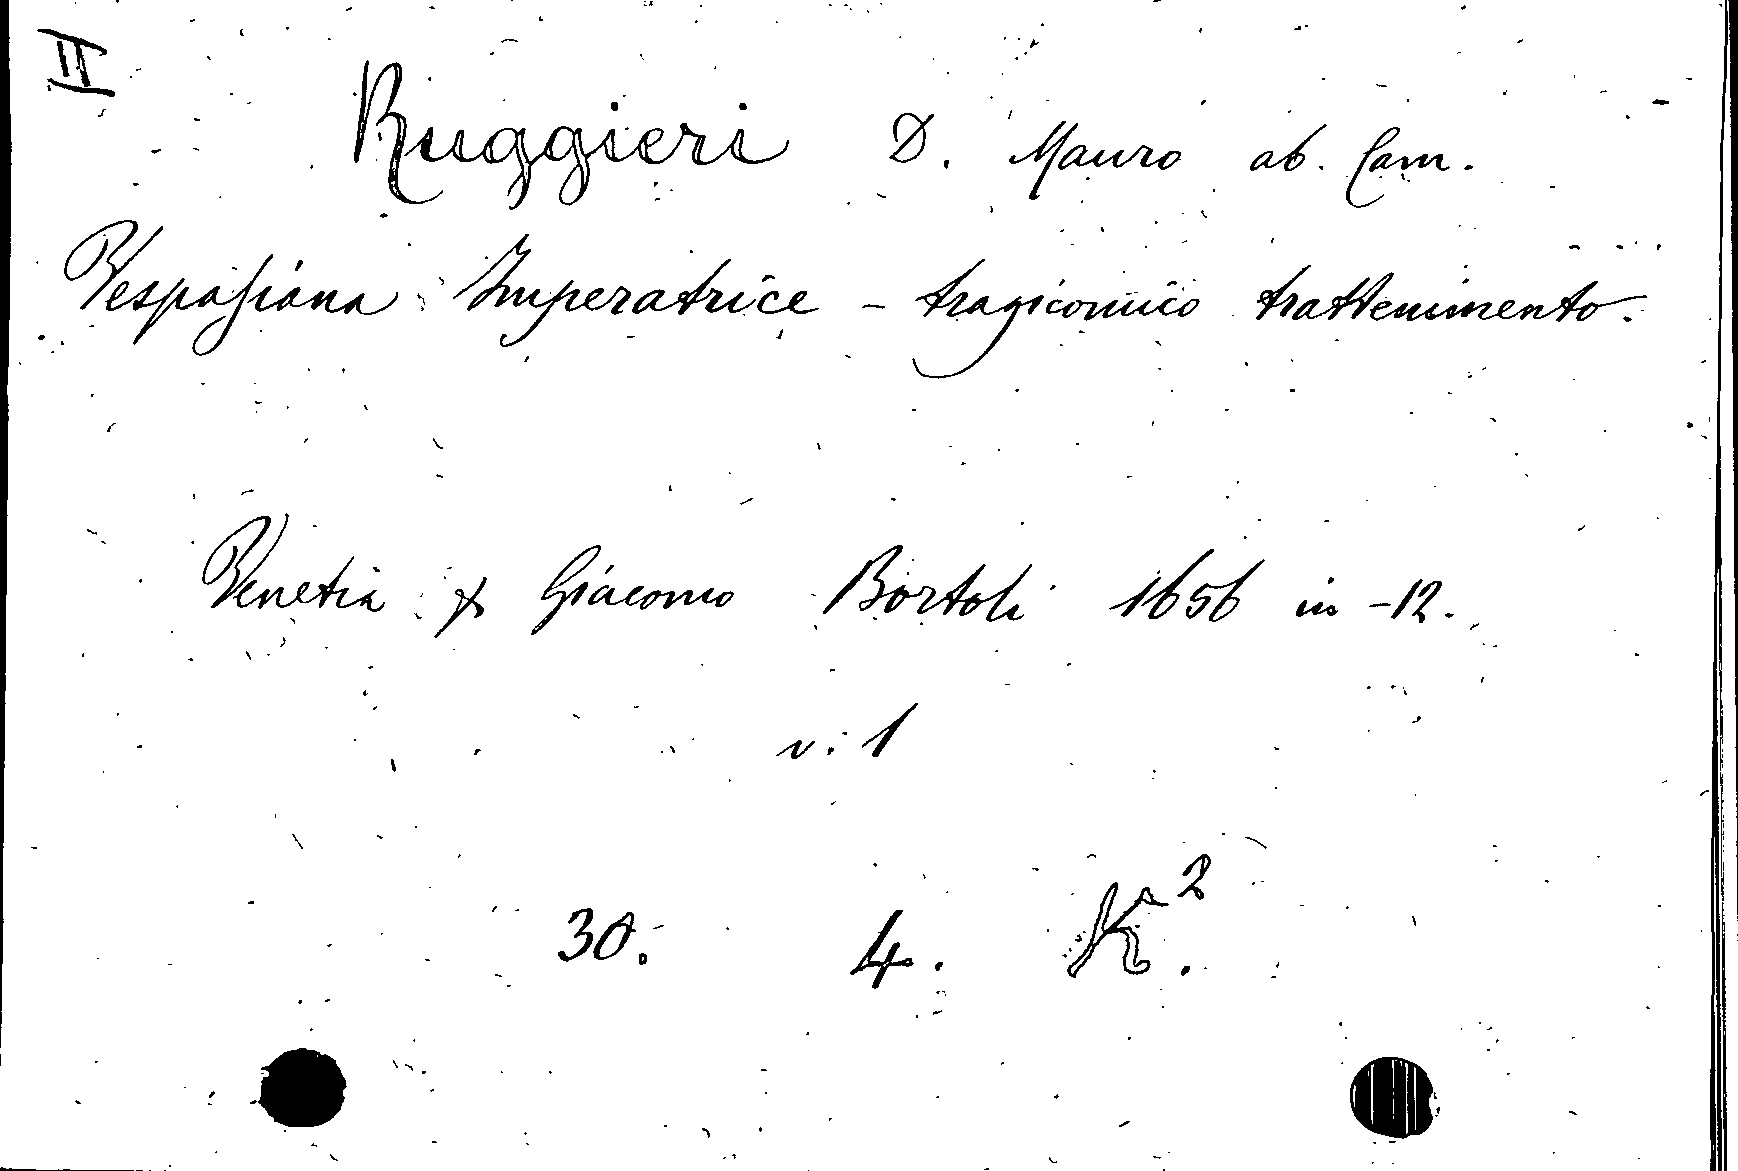 II
Ruggieri D. Mauro ab. Cam.
Vespasiana Imperatrice - tragicomico trattenimento.
Venetia Giacomo Bortoli 1656 in -12.
v. 1
30. 4. K².